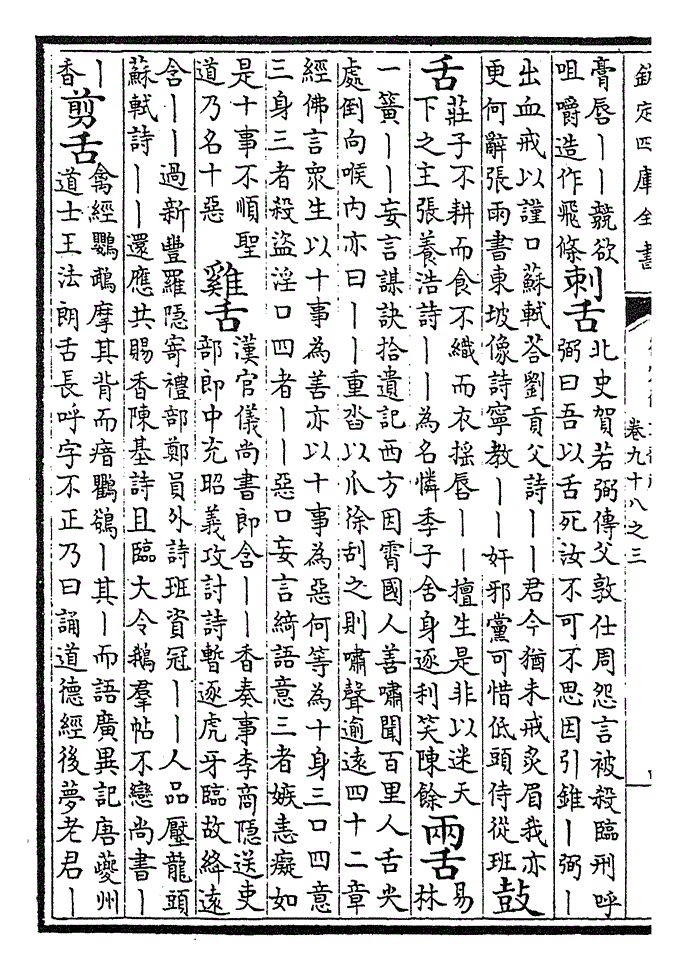 欽定四庫全書
卷九十八之三
膏唇丨丨競欲
咀嚼造作飛條
刺舌
北史賀若弼傳父敦仕周怨言被殺臨刑呼
弼曰吾以舌死汝不可不思因引錐丨弼丨
出血戒以謹口蘇軾荅劉貢父詩丨丨君今猶未戒炙眉我亦
更何辭張雨書東坡像詩寧教丨丨奸邪黨可惜低頭侍從班
鼓
舌
莊子不耕而食不織而衣揺唇丨丨擅生是非以迷天
下之主張養浩詩丨丨為名憐季子舍身逐利笑陳餘
兩舌
易
林
一簧丨丨妄言謀訣拾遺記西方因霄國人善嘯聞百里人舌尖
處倒向喉内亦曰丨丨重沓以爪徐刮之則嘯聲逾遠四十二章
經佛言衆生以十事為善亦以十事為惡何等為十身三口四意
三身三者殺盜淫口四者丨丨惡口妄言綺語意三者嫉恚癡如
是十事不順聖
道乃名十惡
雞舌
漢官儀尚書郎含丨丨香奏事李商隱送吏
部郎中充昭義攻討詩暫逐虎牙臨故絳遠
含丨丨過新豐羅隱寄禮部鄭員外詩班資冠丨丨人品壓龍頭
蘇軾詩丨丨還應共賜香陳基詩且臨大令鵝羣帖不戀尚書丨
丨
香
剪舌
禽經鸚鵡摩其背而瘖鸜鵒丨其丨而語廣異記唐夔州
道士王法朗舌長呼字不正乃曰誦道德經後夢老君丨